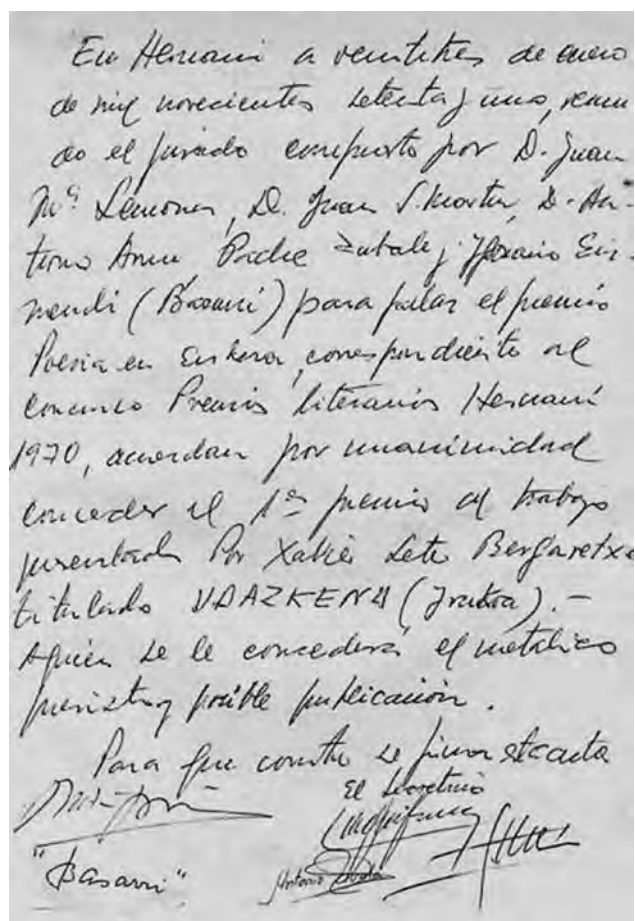 En Hernani a veintitres de enero
de mil novecientos setenta y uno, reuni
do el jurado compuesto por D. Juan
Mª Lecuona, D. Juan S. Martin, D. An-
tonio Arrue Padre Zabala y Ignacio Eiz-
mendi (Basarri) para fallar el premio
Poesia en Euskera, correspondiente al
Concurso Premios literarios Hernani
1970, acuerdan por unanimidad
conceder el 1er premio al trabajo
presentado Por Xabier Lete Bergaretxe
titulado UDAZKENA (Irutxoa). -
A quien se le concederá el metálico
previsto y posible publicación.
Para que conste se firma esta acta
El Secretario
"Basarri" Antonio Zavala